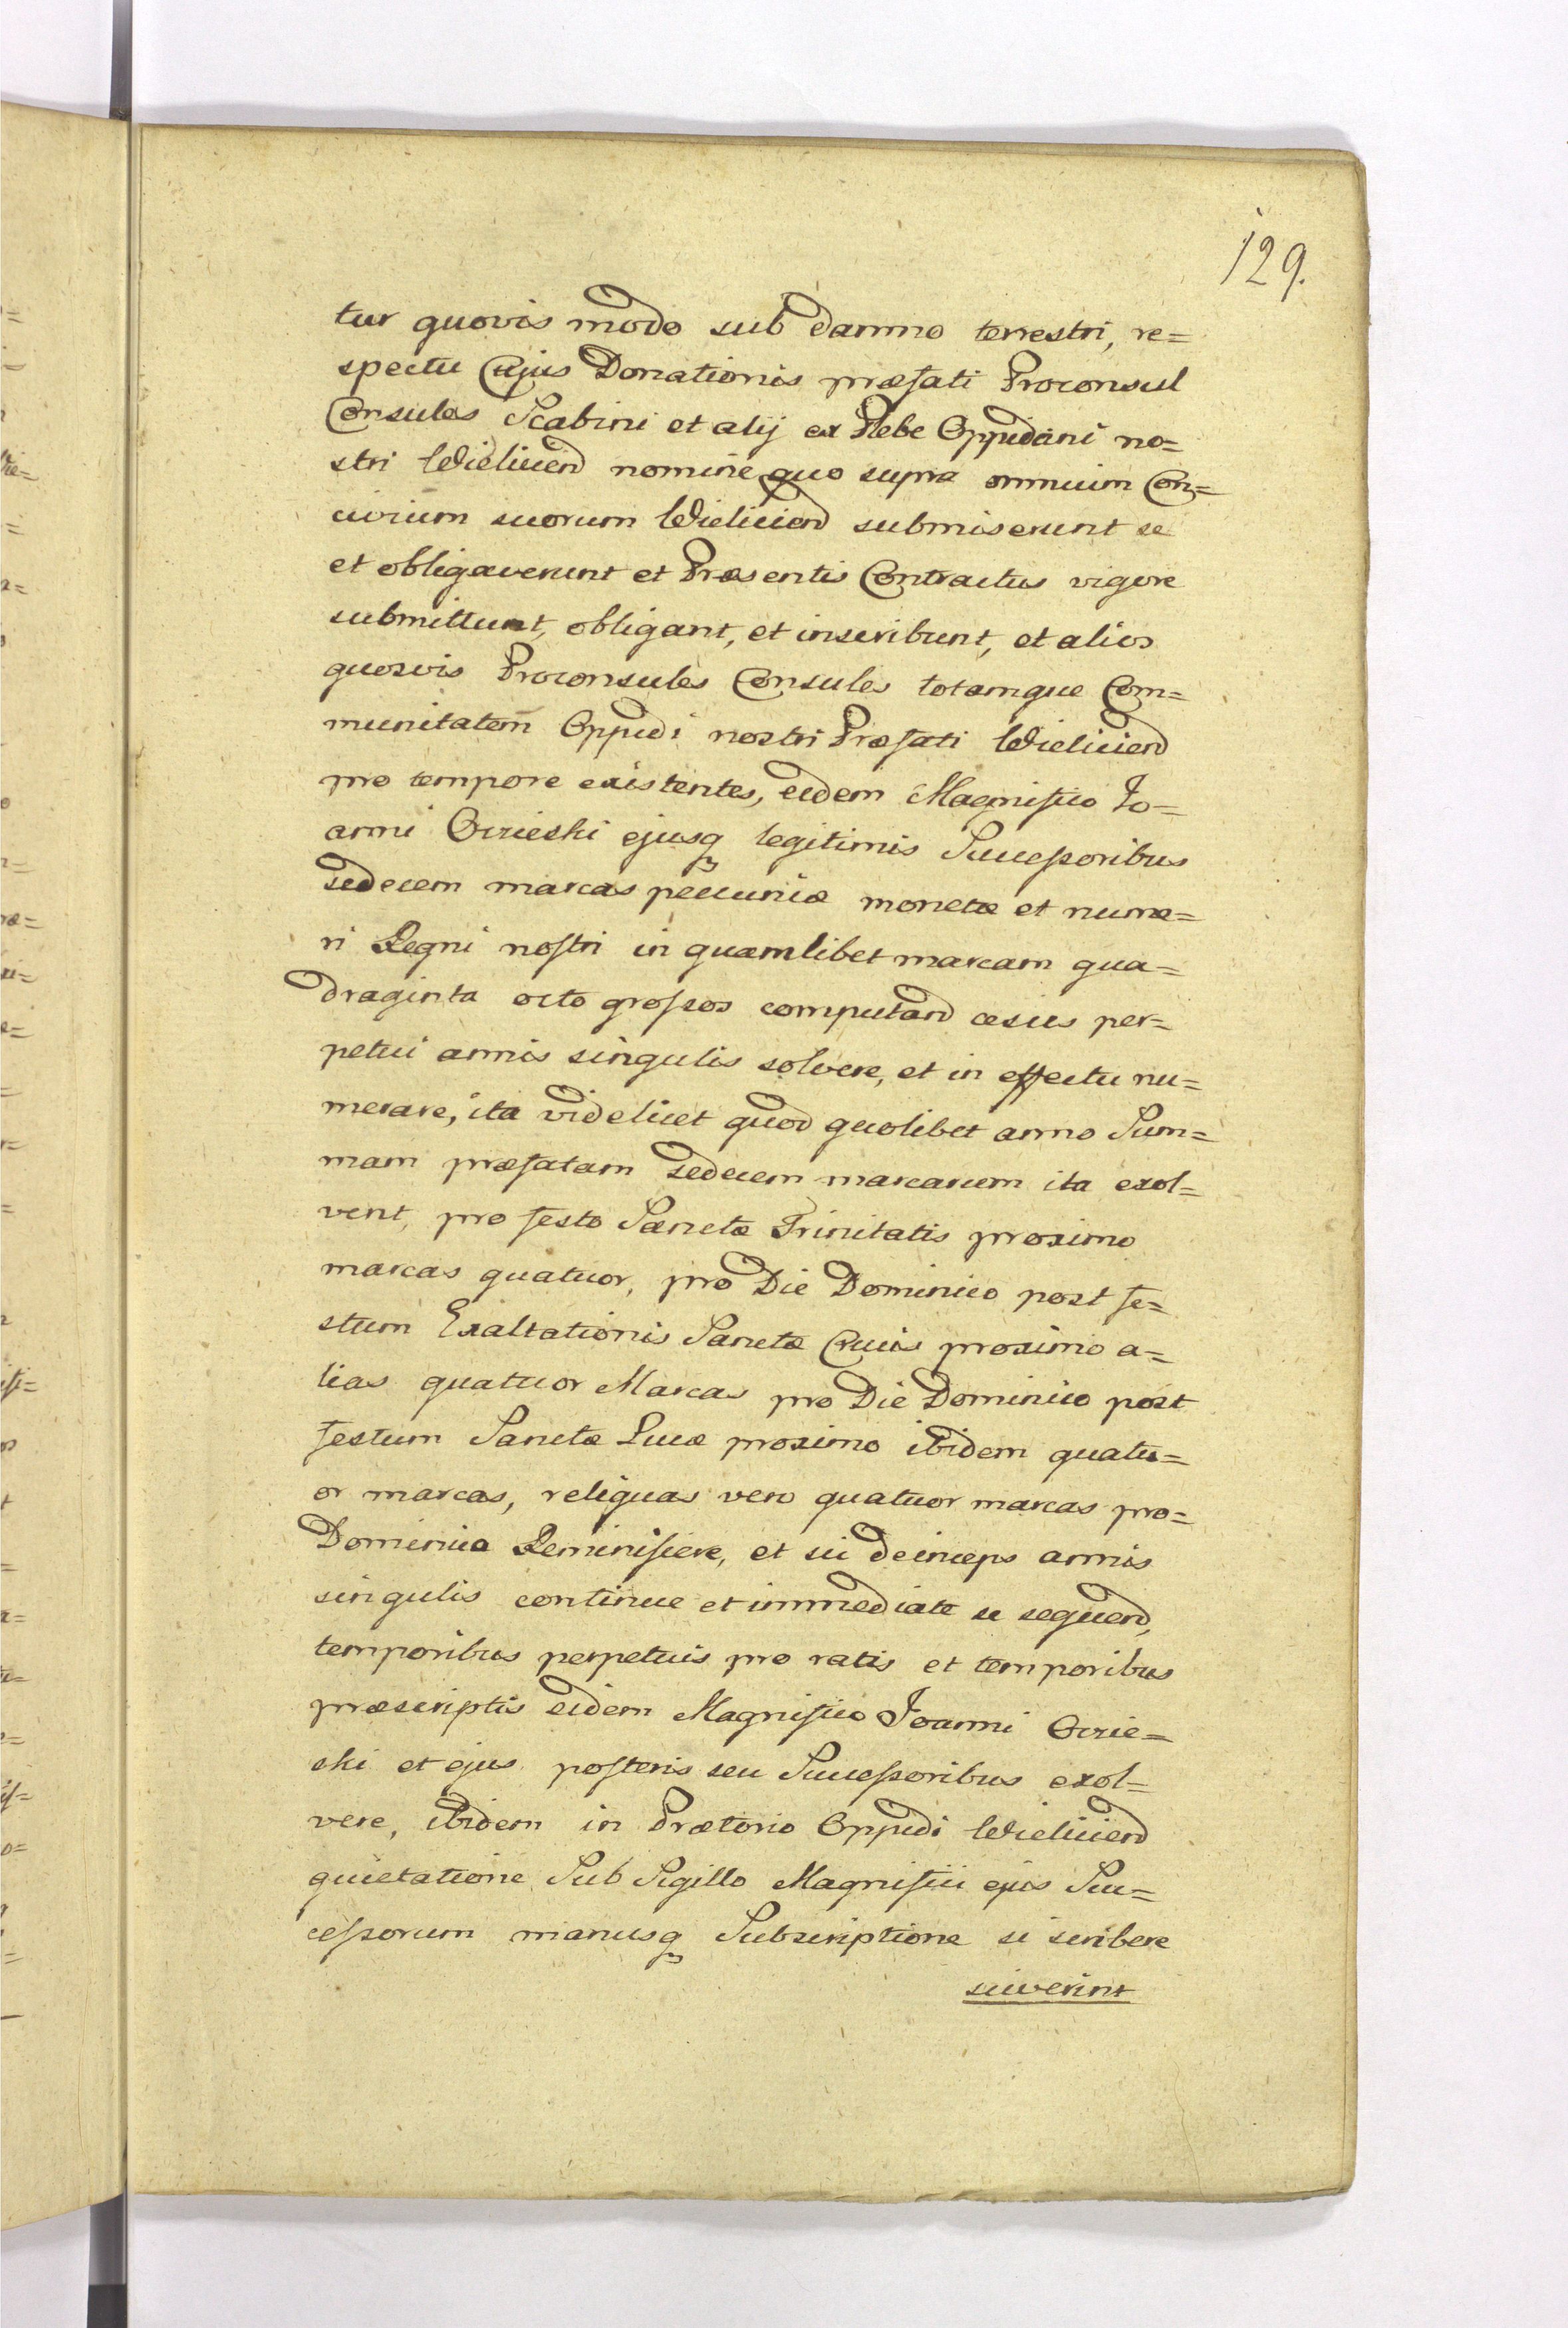 129.
tur quovis modo sub damno terrestri, re=
spectu Cujus Donationis præfati Proconsul
Consules Scabini et alij ex Plebe Oppidani no=
stri Wieliciend nomine quo supra omnium Con=
civium suorum Wieliciend submiserunt se
et obligaverunt et Præsentis Contractus vigore
submittunt, obligant, et inscribunt, et alios
quosvis Proconsules Consules totamque Com=
munitatem Oppidi nostri Præfati Wieliciend
pro tempore existentes, eidem Magnifico Jo=
anni Ocieski ejusq legitimis Successoribus
sedecem marcas pecuniæ monetæ et nume=
ri Regni nostri in quamlibet marcam qua=
draginta octo grossos computand census per=
petui annis singulis solvere, et in effectu nu=
merare, ita videlicet quod quolibet anno Sum=
mam præfatam sedecem marcarum ita exol=
vent, pro festo Sanctæ Trinitatis proximo
marcas quatuor, pro Die Dominico post fe=
stum Exaltationis Sanctæ Crucis proximo a=
lias quatuor Marcas pro Die Dominico post
festum Sanctæ Lucæ proximo ibidem quatu=
or marcas, reliquas vero quatuor marcas pro=
Dominica Reminiscere, et sic deinceps annis
singulis continue et immediate se sequend,
temporibus perpetuis pro ratis et temporibus
præscriptis eidem Magnifico Joanni Ocie=
ski et ejus posteris seu Successoribus exol=
vere, ibidem in Prætorio Oppidi Wieliciend
quietatione Sub Sigillo Magnifici ejus Suc=
cessorum manusq Subscriptione si scribere
sciverint